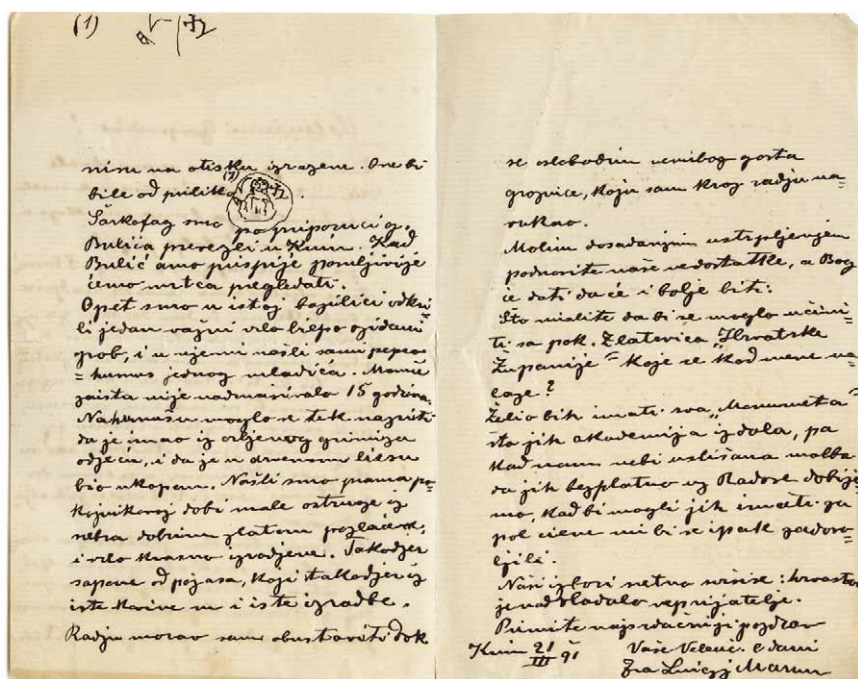 (1)
nisu na otisku izražene. One bi
bile od prilike (1)
Sarkofag smo po priporuci g.
Bulića prevezli u Knin. Kad
Bulić amo prispije pomljivije
ćemo mrtca pregledati.
Opet smo u istoj bazilici odkri-
li jedan važni vrlo liepo ozidani
grob, i u njemu našli sami pepeo
= humus jednog mladića. Momče
zaista nije nadmašivalo 15 godina.
Na humusu moglo se tek nazrieti
da je imao iz crljenog grimiza
odjeću, i da je u drvenom liesu
bio ukopan. Našli smo prama po-
kojnikovoj dobi male ostruge iz
srebra dobrim zlatom pozlaćene,
i vrlo krasno izradjene. Takodjer
sapone od pojasa, koji takodjer iz
iste kovine su i iste izradbe.
Radju morao sam obustaviti dok
se oslobodim nemilog gosta
groznice, koju sam kroz radju na-
vukao.
Molim dosadanjim ustrpljenjem
podnosite naše nedostatke, a Bog
će dati da će i bolje biti:
Što mislite da bi se moglo učini-
ti sa pok. Zlatovića "Hrvatske
Županije" koje se kod mene na-
laze?
Želio bih imati sva "Monumeta"
što jih akademija izdala, pa
kad nam nebi uslišana molba
da jih bezplatno uz Radove dobije-
mo, kad bi mogli jih imati za
pol ciene mi bi se ipak zadovo-
ljili.
Naši izbori sretno svisise: hrvastvo
je nadvladalo neprijatelje.
Primite najsrdačniji pozdrav
Knin 21/III 91 Vaše Velenc. odani
Fra Luigj Marun